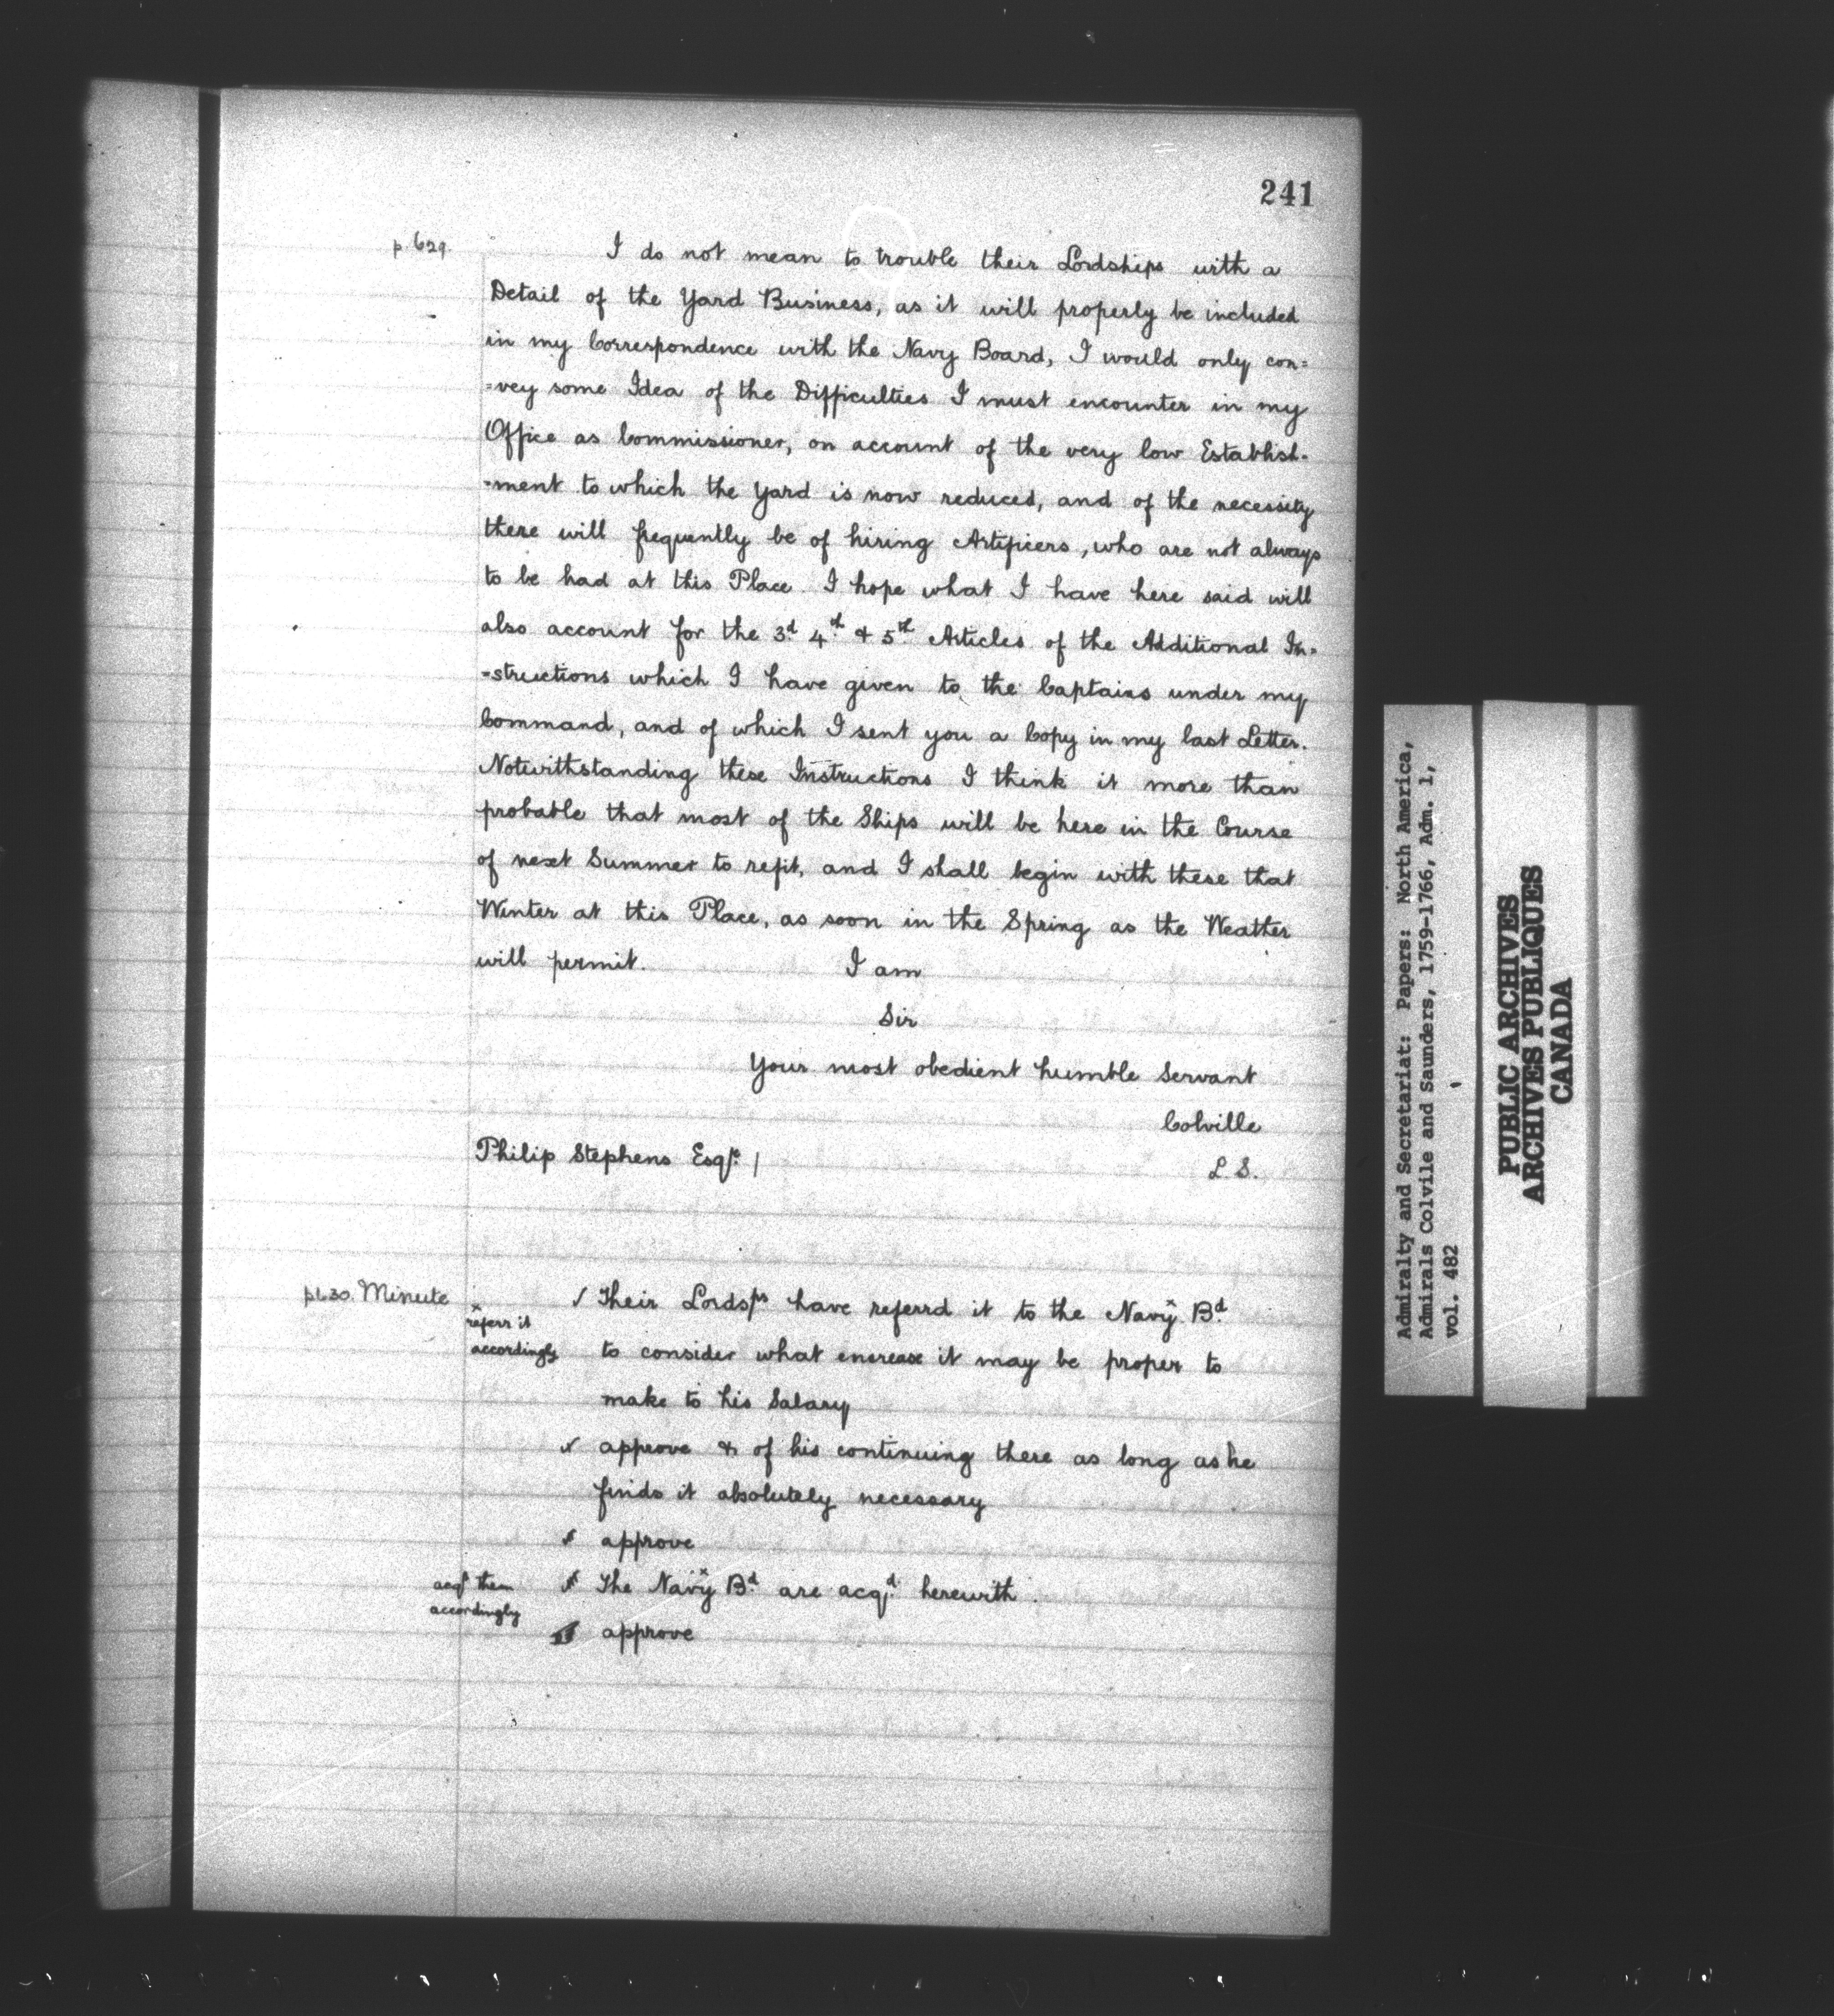 241
p. 629.
I do not mean to trouble their Lordships with a
Detail of the Yard Business, as it will properly be included
in my Correspondence with the Navy Board, I would only con=
=vey some Idea of the Difficulties I must encounter in my
Office as Commissioner, on account of the very low Establish-
-ment to which the Yard is now reduced, and of the necessity
there will frequently be of hiring Artificers, who are not always
to be had at this Place. I hope what I have here said will
also account for the 3d 4th & 5th Articles of the Additional In-
-structions which I have given to the Captains under my
Command, and of which I sent you a Copy in my last Letter.
Notwithstanding these Instructions I think it more than
probable that most of the Ships will be here in the Course
of next Summer to refit, and I shall begin with these that
Winter at this Place, as soon in the Spring as the Weather
will permit.
I am
Sir
Your most obedient humble Servant
Colville
Philip Stephens Esqr. /
L. S.
p630. Minute
√ Their Lordsps have referrd it to the Navy x Bd.
x referr it
accordingly
to consider what encrease it may be proper to
make to his Salary
√ approve & of his continuing there as long as he
finds it absolutely necessary
approve
acqt them
accordingly
The Navy x Bd. are acqd. herewith.
approve
Admiralty and Secretariat: Papers: North America,
Admirals Colvile and Saunders, 1759-1766, Adm. 1,
vol. 482
PUBLIC ARCHIVES
ARCHIVES PUBLIQUES
CANADA